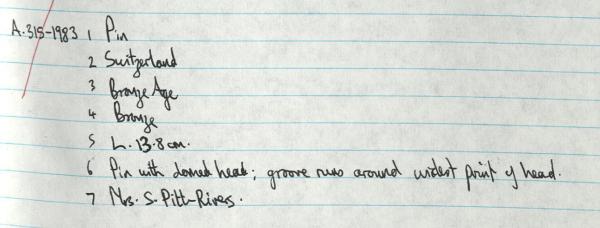 A.315-1983 1 Pin
2 Switzerland
3 Bronze Age
4 Bronze
5 L. 13.8 cm.
6 Pin with domed head; groove runs around widest point of head.
7 Mrs. S. Pitt-Rivers.